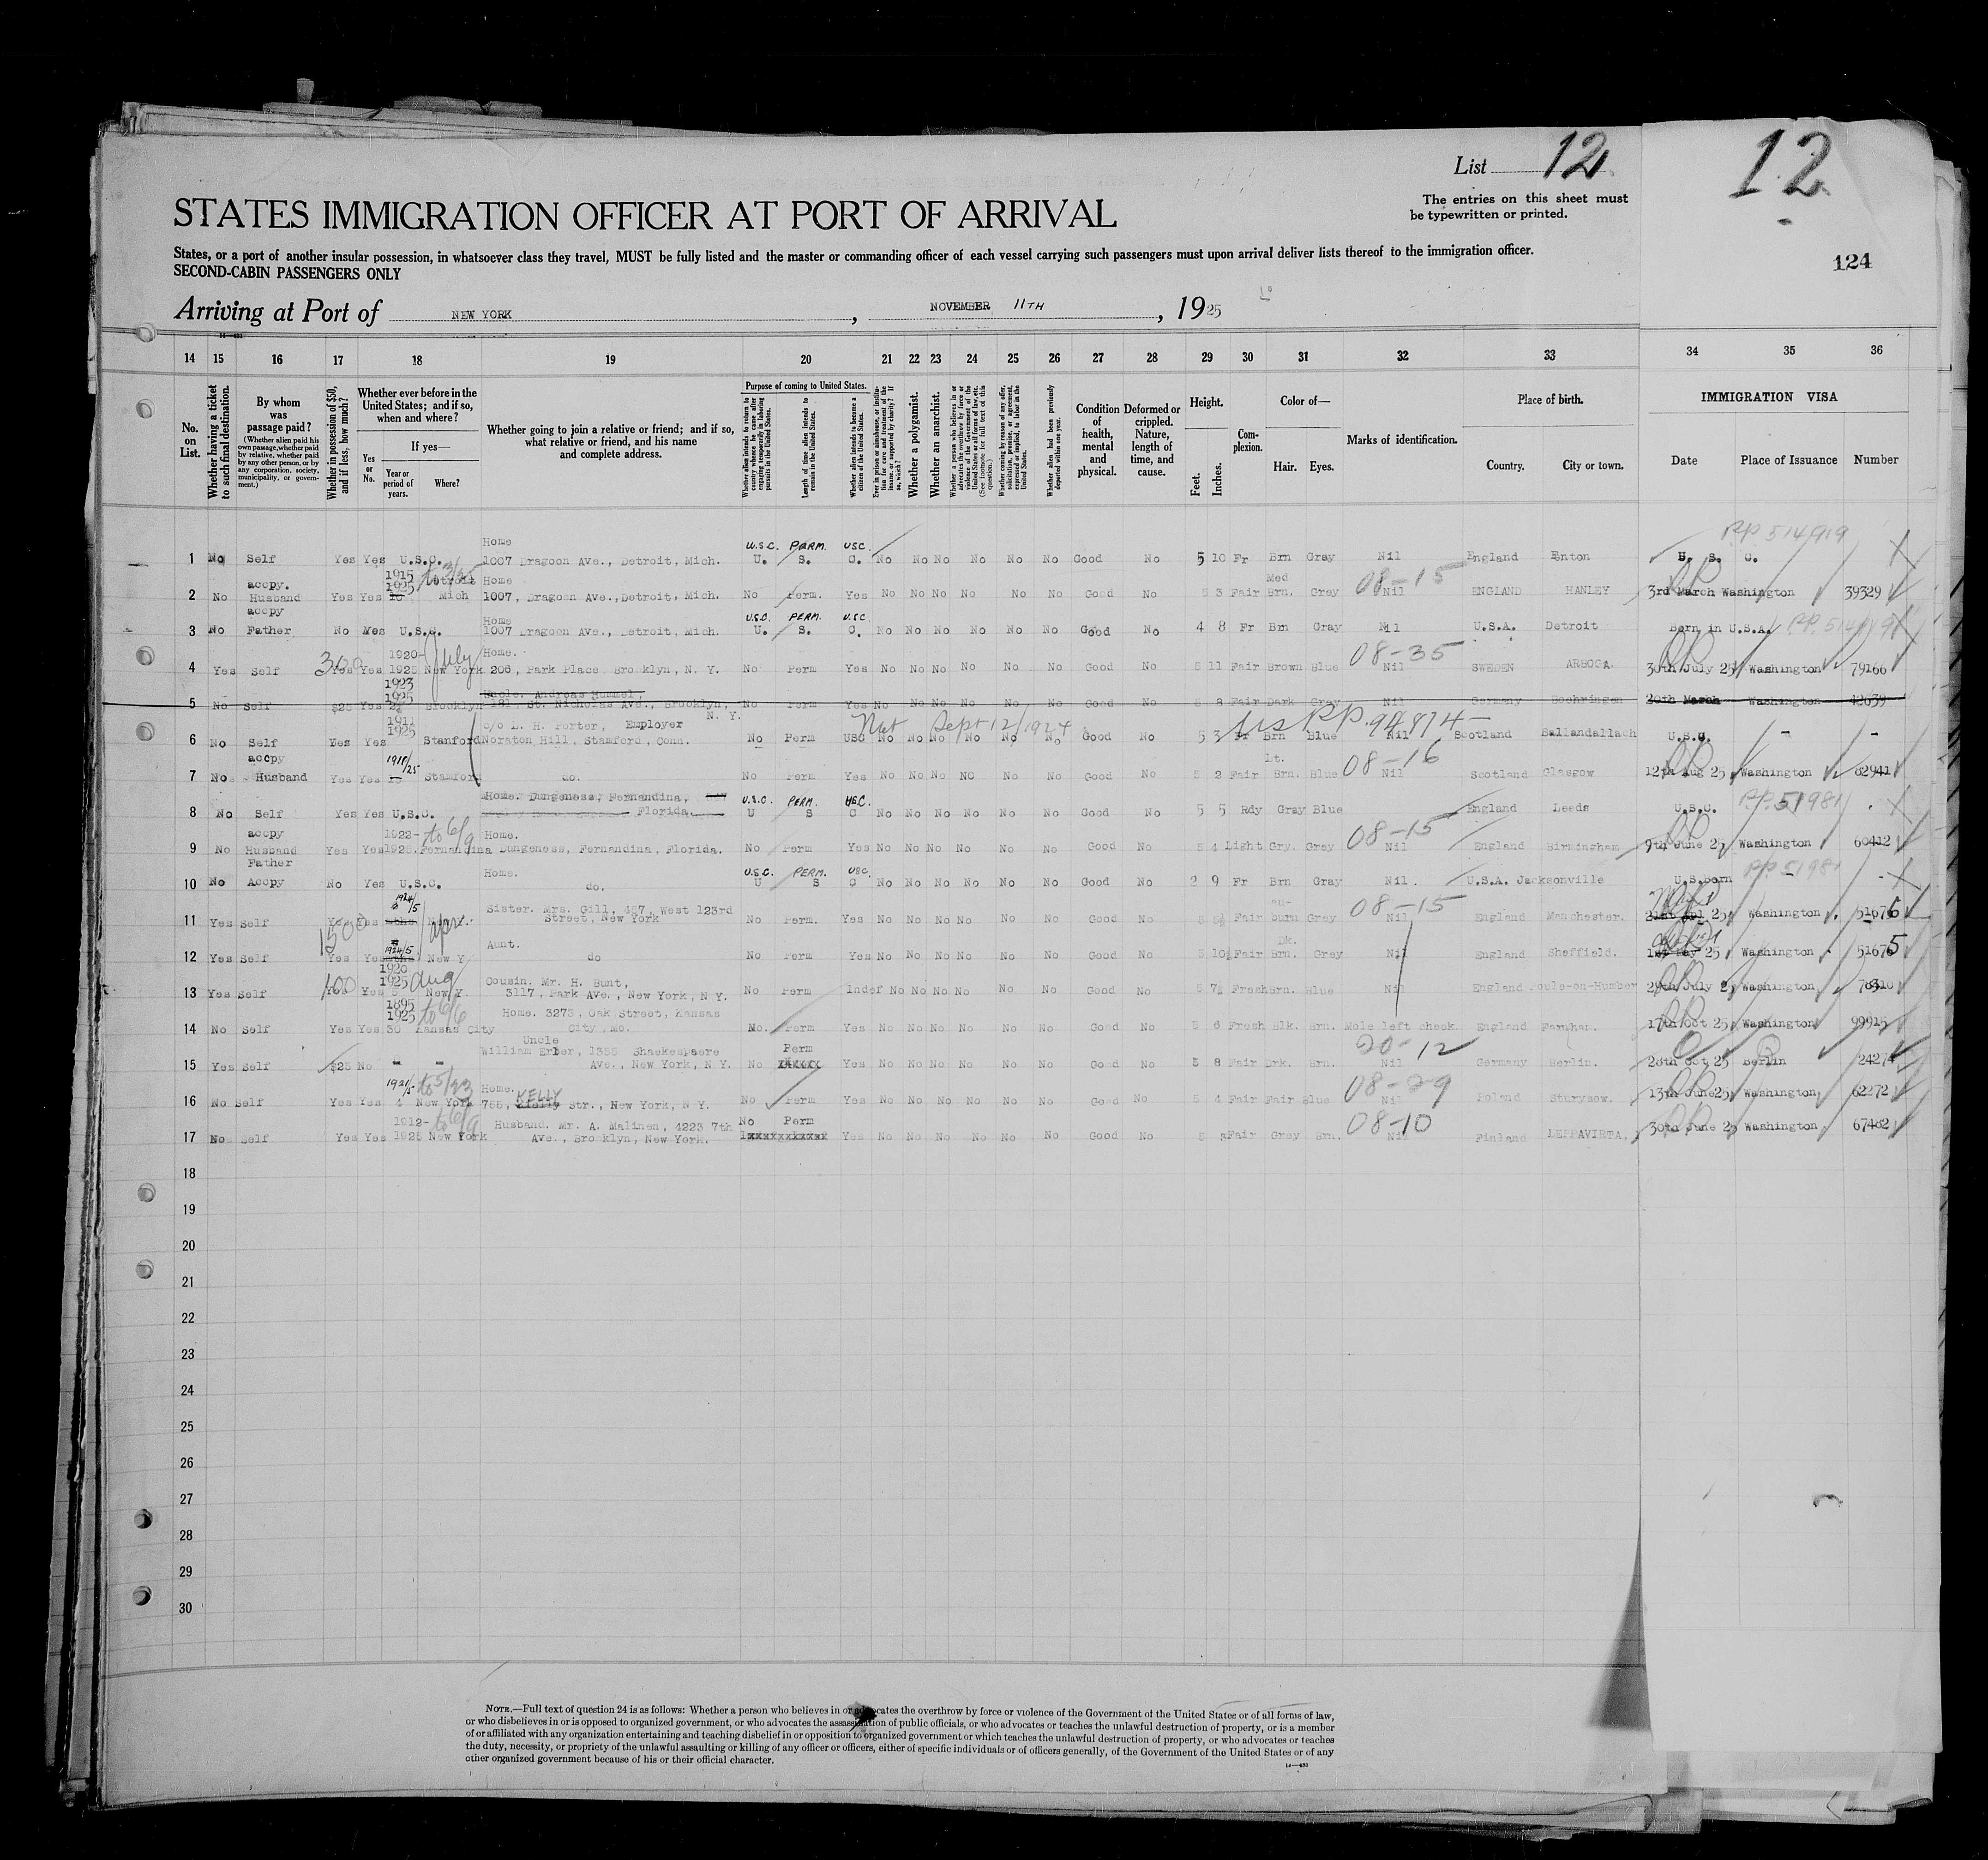 List 12
12
The entries on this sheet must
be typewritten or printed.
STATES IMMIGRATION OFFICER AT PORT OF ARRIVAL
124
States, or a port of another insular possession, in whatsoever class they travel, MUST be fully listed and the master or commanding officer of each vessel carrying such passengers must upon arrival deliver lists thereof to the immigration officer.
SECOND-CABIN PASSENGERS ONLY
Arriving at Port of NEW YORK, NOVEMBER 11TH, 1925
14 15 16 17 18 19 20 21 22 23 24 25 26 27 28 29 30 31 32 33 34 35 36
No. on List.
Whether having a ticket to such final destination.
By whom was passage paid?
(Whether alien paid his own passage, whether paid by relative, whether paid by any other person, or by any corporation, society, municipality, or government.)
Whether in possession of $50, and if less, how much?
Whether ever before in the United States; and if so, when and where?
Yes or No.
If yes—
Year or period of years.
Where?
Whether going to join a relative or friend; and if so, what relative or friend, and his name and complete address.
Purpose of coming to United States.
Whether alien intends to return to country whence he came after engaging temporarily in laboring pursuits in the United States.
Length of time alien intends to remain in the United States.
Whether alien intends to become a citizen of the United States.
Ever in prison or almshouse, or institution for care and treatment of the insane, or supported by charity? If so, which?
Whether a polygamist.
Whether an anarchist.
Whether a person who believes in or advocates the overthrow by force or violence of the Government of the United States or all forms of law, etc. (See footnote for full text of this question.)
Whether coming by reason of any offer, solicitation, promise, or agreement, expressed or implied, to labor in the United States.
Whether alien had been previously deported within one year.
Condition of health, mental and physical.
Deformed or crippled. Nature, length of time, and cause.
Height.
Feet. Inches.
Complexion.
Color of—
Hair. Eyes.
Marks of identification.
Place of birth.
Country. City or town.
IMMIGRATION VISA
Date Place of Issuance Number
Home U.S.C. PERM. USC. P.P. 514919
1 No Self Yes Yes U.S.C. 1007 Dragoon Ave., Detroit, Mich. U. S. C. No No No No No No Good No 5 10 Fr Brn Gray Nil England Fenton U. S. C.
accpy. 1915 1925 Detroit Home Med 08-15
2 No Husband Yes Yes Mich 1007, Dragoon Ave., Detroit, Mich. No Perm. Yes No No No No No No Good No 5 3 Fair Brn. Grey Nil ENGLAND HANLEY 3rd March Washington 39329
accpy Home U.S.C. PERM. U.S.C.
3 No Father No Yes U.S.C. 1007 Dragoon Ave., Detroit, Mich. U. S. C. No No No No No No Good No 4 8 Fr Brn Gray Nil U.S.A. Detroit Born in U.S.A.
300 1920- July Home. 08-35
4 Yes Self Yes Yes 1925 New York 206, Park Place, Brooklyn, N. Y. No Perm Yes No No No No No No Good No 5 11 Fair Brown Blue Nil SWEDEN ARBOGA. 30th July 25 Washington 79166
1923 1925 Uncle. Andreas Hummel,
5 No Self $25 Yes Brooklyn 181, St. Nicholas Ave., Brooklyn, N. Y. No Perm Yes No No No No No No Good No 5 8 Fair Dark Grey Nil Germany Boehringen 20th March Washington 42639
1911 1925 c/o L. H. Porter, Employer Nat Sept 12/1924 US P.P. 94814
6 No Self Yes Yes Stanford Noraton Hill, Stamford, Conn. No Perm USC No No No No No No Good No 5 3 Fr Brn Blue Nil Scotland Ballandallach U.S.C. - -
accpy 1918/25 Lt. 08-16
7 No Husband Yes Yes Stamford do. No Perm Yes No No No No No No Good No 5 2 Fair Brn. Blue Nil Scotland Glasgow 12th Aug 25 Washington 62941
Home. Dungeness, Fernandina, U.S.C. PERM. USC. P.P. 51981
8 No Self Yes Yes U.S.C. Florida. U S C No No No No No No Good No 5 5 Rdy Gray Blue England Leeds U.S.C.
accpy 1922- to 6/9 Home. 08-15
9 No Husband Yes Yes 1925. Fernandina Dungeness, Fernandina, Florida. No Perm Yes No No No No No No Good No 5 4 Light Gry. Grey Nil England Birmingham 9th June 25 Washington 60412
Father Home. U.S.C. PERM. USC. P.P. 51981
10 No Accpy No Yes U.S.C. do. U S C No No No No No No Good No 2 9 Fr Brn Gray Nil. U.S.A. Jacksonville U.S.Born
1924/5 Sister. Mrs. Gill, 457, West 123rd au- 08-15
11 Yes Self Yes Yes Street, New York No Perm. Yes No No No No No No Good No Fair burn Grey Nil England Manchester. Washington 51676
150 1924/5 Aunt. Dk.
12 Yes Self Yes Yes New Y do No Perm Yes No No No No No No Good No 5 10½ Fair Brn. Grey Nil England Sheffield. 1st May 25 Washington 51675
100 1920 1925 Aug Cousin. Mr. H. Bunt,
13 Yes Self Yes Yes New Y. 3117, Park Ave., New York, N Y. No Perm Indef No No No No No No Good No 5 7½ Fresh Brn. Blue Nil England Poule-on-Humber 29th July 25 Washington 78310
1895 1925 to 6/6 Home. 3273, Oak Street, Kansas
14 No Self Yes Yes 30 Kansas City City, Mo. No. Perm Yes No No No No No No Good No 5 6 Fresh Blk. Brn. Mole left cheek. England Farnham. 17th Oct 25 Washington 99915
Uncle Perm 20-12
15 Yes Self $25 No - - William Erber, 1355 Shackespaere Ave., New York, N Y. No Yes No No No No No No Good No 5 8 Fair Drk. Brn. Nil Germany Berlin. 28th Oct 25 Berlin 24274
1921/5 to 5/23 Home. 08-29
16 No Self Yes Yes 4 New York 755, KELLY Str., New York, N Y. No Perm Yes No No No No No No Good No 5 4 Fair Fair Blue Nil Poland Sturysow. 13th June 25 Washington 62272
1912- to 6/9 Husband. Mr. A. Malinen, 4223 7th No Perm 08-10
17 No Self Yes Yes 1925 New York Ave., Brooklyn, New York. Yes No No No No No No Good No 5 Fair Grey Brn. Nil Finland LEPPAVIRTA. 30th June 25 Washington 67482
18
19
20
21
22
23
24
25
26
27
28
29
30
NOTE.—Full text of question 24 is as follows: Whether a person who believes in or advocates the overthrow by force or violence of the Government of the United States or of all forms of law,
or who disbelieves in or is opposed to organized government, or who advocates the assassination of public officials, or who advocates or teaches the unlawful destruction of property, or is a member
of or affiliated with any organization entertaining and teaching disbelief in or opposition to organized government or which teaches the unlawful destruction of property, or who advocates or teaches
the duty, necessity, or propriety of the unlawful assaulting or killing of any officer or officers, either of specific individuals or of officers generally, of the Government of the United States or of any
other organized government because of his or their official character.